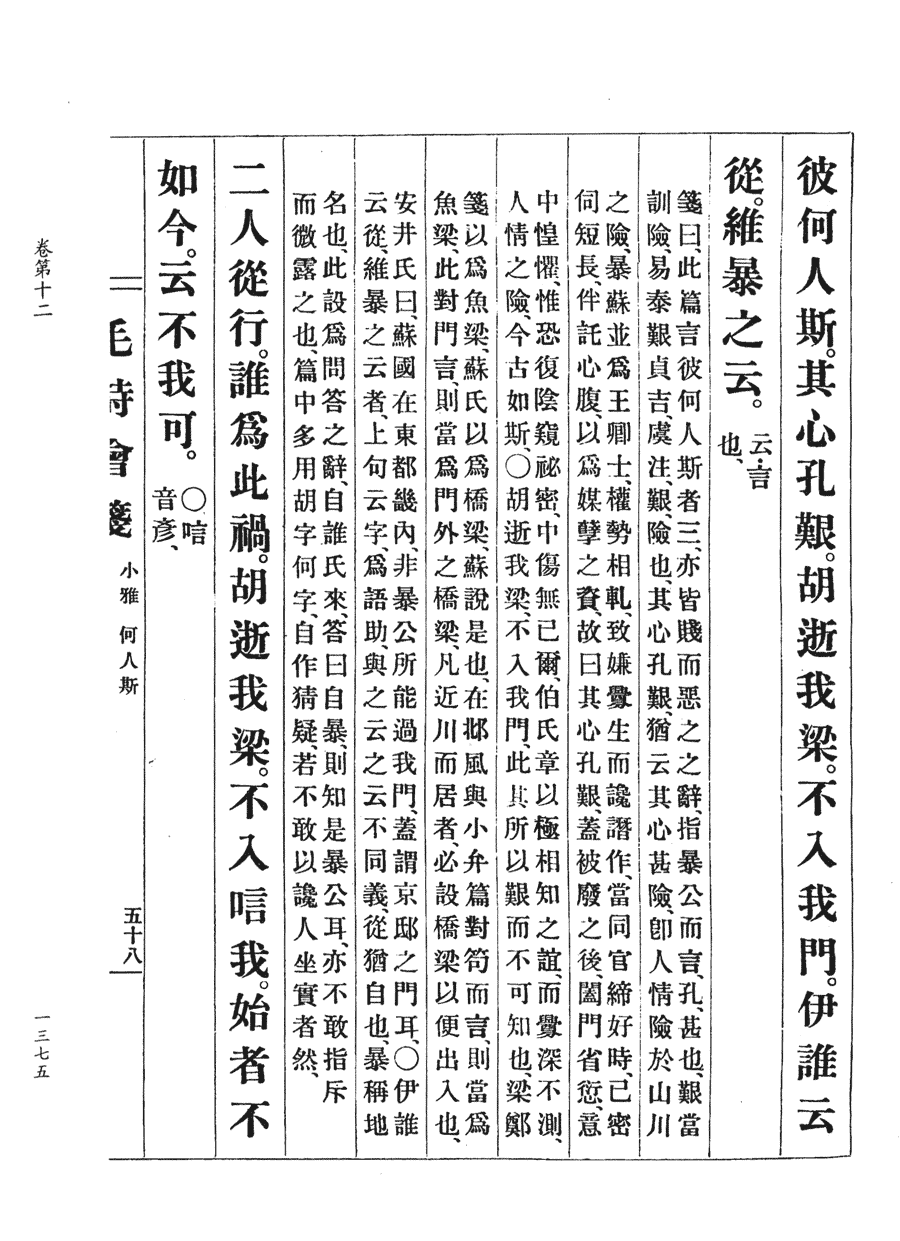 彼何人斯。其心孔艱。胡逝我梁。不入我門。伊誰云
從。維暴之云。
云、言
也、
箋曰、此篇言彼何人斯者三、亦皆賤而惡之之辭、指暴公而言、孔、甚也、艱當
訓險、易泰艱貞吉、虞注、艱、險也、其心孔艱、猶云其心甚險、卽人情險於山川
之險、暴蘇並爲王卿士、權勢相軋、致嫌釁生而讒譖作、當同官締好時、已密
伺短長、伴託心腹、以爲媒孽之資、故曰其心孔艱、蓋被廢之後、闔門省愆、意
中惶懼、惟恐復陰窺祕密、中傷無已爾、伯氏章以極相知之誼、而釁深不測、
人情之險、今古如斯、〇胡逝我梁、不入我門、此其所以艱而不可知也、梁鄭
箋以爲魚梁、蘇氏以爲橋梁、蘇說是也、在邶風與小弁篇對笱而言、則當爲
魚梁、此對門言、則當爲門外之橋梁、凡近川而居者、必設橋梁以便出入也、
安井氏曰、蘇國在東都畿內、非暴公所能過我門、蓋謂京邸之門耳、〇伊誰
云從、維暴之云者、上句云字、爲語助、與之云之云不同義、從猶自也、暴稱地
名也、此設爲問答之辭、自誰氏來、答曰自暴、則知是暴公耳、亦不敢指斥
而微露之也、篇中多用胡字何字、自作猜疑、若不敢以讒人坐實者然、
二人從行。誰爲此禍。胡逝我梁。不入唁我。始者不
如今。云不我可。
〇唁
音彥、
毛詩會箋 小雅 何人斯 五十八
卷第十二
一三七五